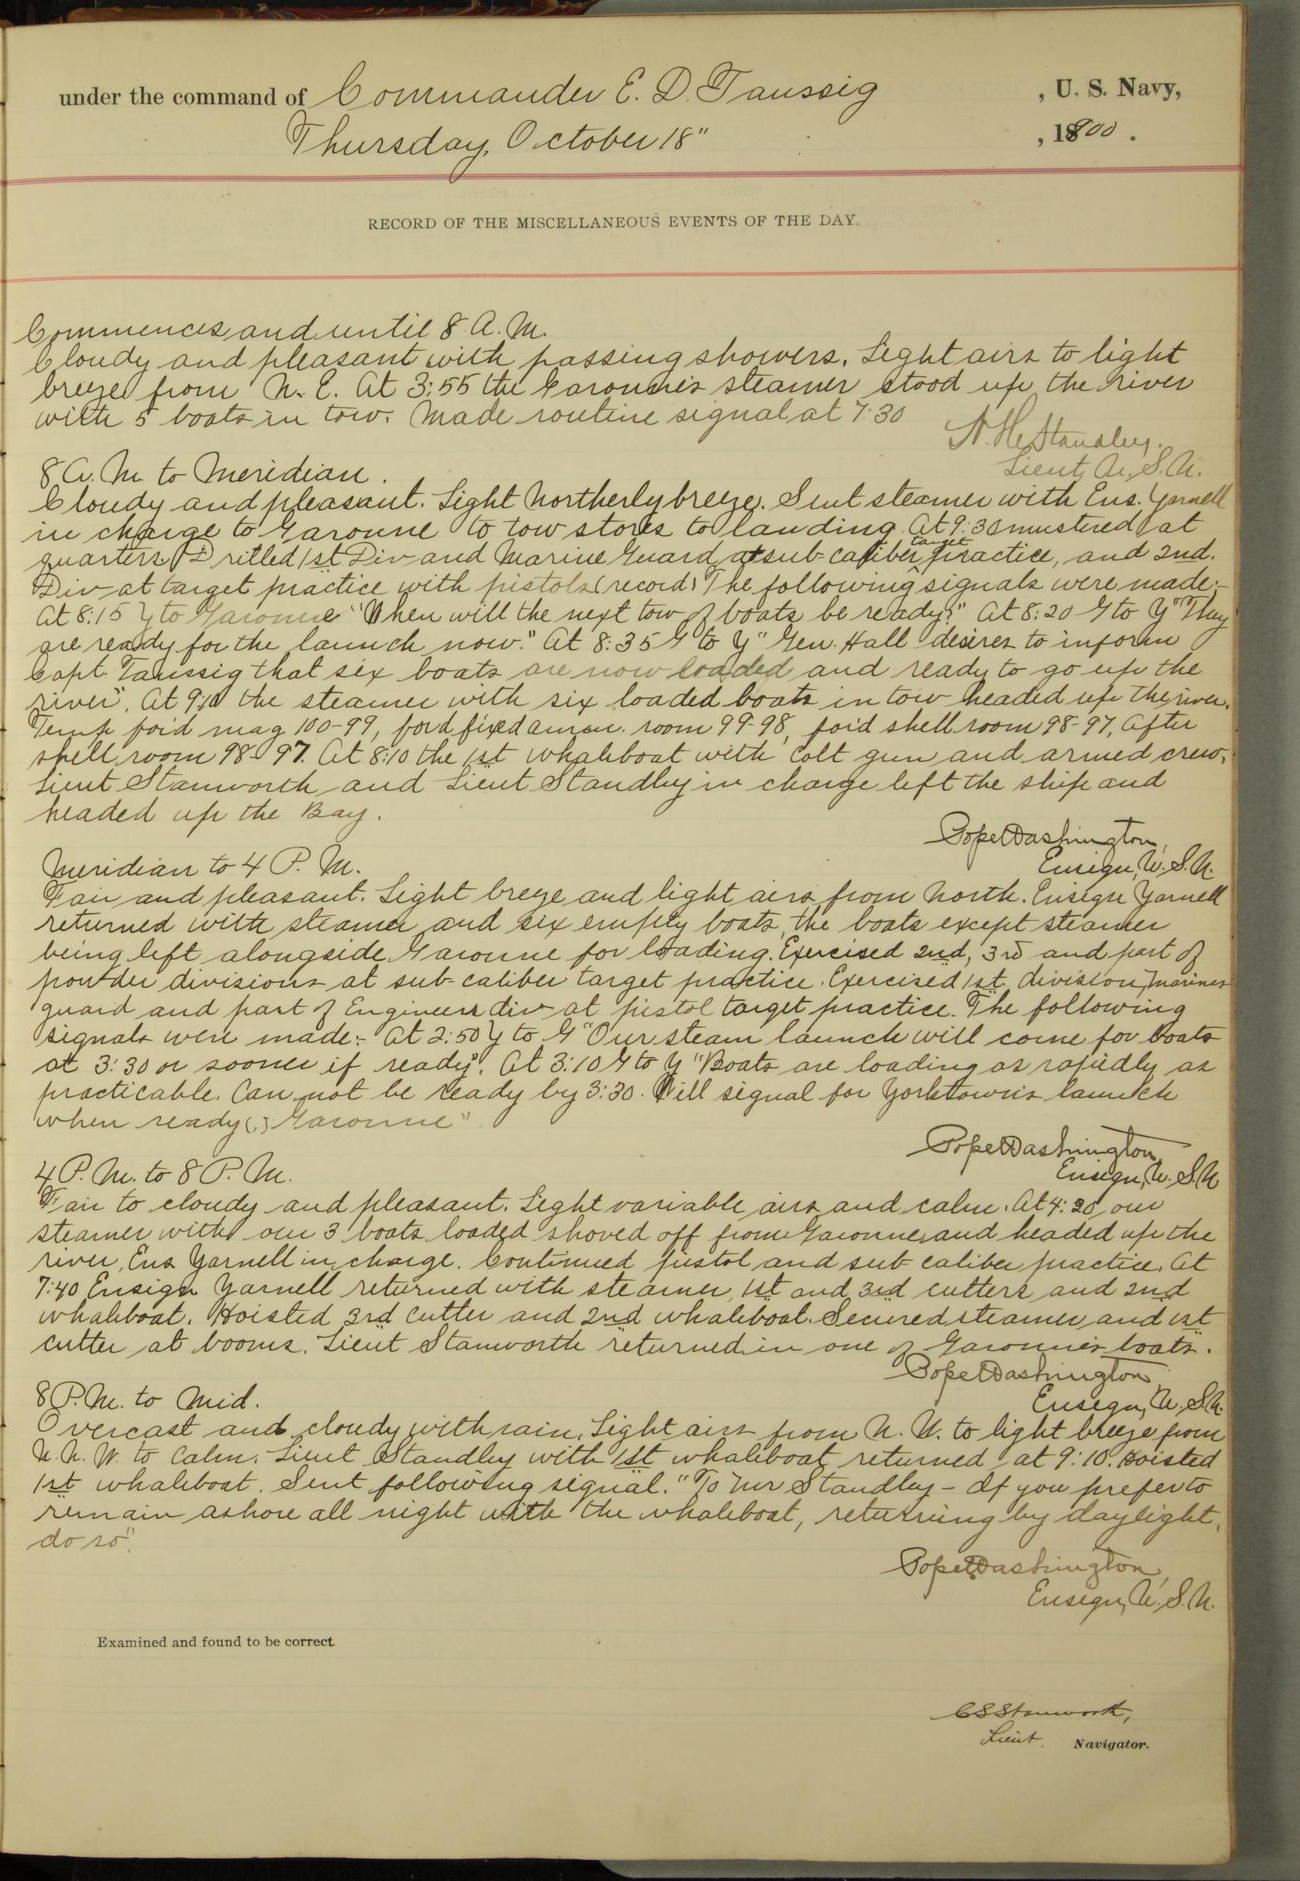 under the command of Commander E. D. Taussig , U. S. Navy,
Thursday, October 18" , 1900 .
RECORD OF THE MISCELLANEOUS EVENTS OF THE DAY.
Commences and until 8 A. M.
Cloudy and pleasant with passing showers. Light airs to light
breeze from N. E. At 3:55 the Garonne's steamer stood up the river
with 5 boats in tow. Made routine signal at 7:30
W. H. Standley.
Lieut, U. S. N.
8 A. M. to Meridian.
Cloudy and pleasant. Light Northerly breeze. Sent steamer with Ens. Yarnell
in charge to Garonne to tow stores to landing. At 9:30 mustered at
quarters. Drilled 1st Div and Marine Guard at sub-caliber target practice, and 2nd.
Div at target practice with pistols (record) The following signals were made:-
At 8:15 Y to Garonne "When will the next tow of boats be ready?" At 8:20 G to Y "They
are ready for the launch now." At 8:35 G to Y "Gen. Hall desires to inform
Capt. Taussig that six boats are now loaded and ready to go up the
river". At 9:10 the steamer with six loaded boats in tow headed up the river.
Temp for'd mag 100-99, for'd fixed amm. room 99-98, for'd shell room 98-97, after
shell room 98-97. At 8:10 the 1st whaleboat with Colt gun and armed crew,
Lieut Stanworth and Lieut Standley in charge left the ship and
headed up the Bay.
Pope Washington,
Ensign, U. S. N.
Meridian to 4 P. M.
Fair and pleasant. Light breeze and light airs from North. Ensign Yarnell
returned with steamer and six empty boats, the boats except steamer
being left alongside Garonne for loading. Exercised 2nd, 3rd and part of
powder divisions at sub-caliber target practice. Exercised 1st. division, marines
guard and part of Engineers div at pistol target practice. The following
signals were made:- At 2:50 Y to G "Our steam launch will come for boats
at 3:30 or sooner if ready". At 3:10 G to Y "Boats are loading as rapidly as
practicable. Can not be ready by 3:30. Will signal for Yorktown's launch
when ready (.) Garonne"
Pope Washington,
Ensign, U. S. N
4 P. M. to 8 P. M.
Fair to cloudy and pleasant. Light variable airs and calm. At 4:20 our
steamer with our 3 boats loaded shoved off from Garonne and headed up the
river, Ens Yarnell in charge. Continued pistol and sub-caliber practice. At
7:40 Ensign Yarnell returned with steamer, 1st and 3rd cutters and 2nd
whaleboat. Hoisted 3rd cutter and 2nd whaleboat. Secured steamer and 1st
cutter at booms. Lieut Stanworth returned in one of Garonne's boats.
Pope Washington
Ensign, U. S. N.
8 P. M. to Mid.
Overcast and cloudy with rain. Light airs from N. W. to light breeze from
N. N. W. to calm. Lieut Standley with 1st whaleboat returned at 9:10. Hoisted
1st whaleboat. Sent following signal. "To Mr Standley - If you prefer to
remain ashore all night with the whaleboat, returning by daylight,
do so".
Pope Washington,
Ensign, U. S. N.
Examined and found to be correct.
C S Stanworth,
Lieut. Navigator.